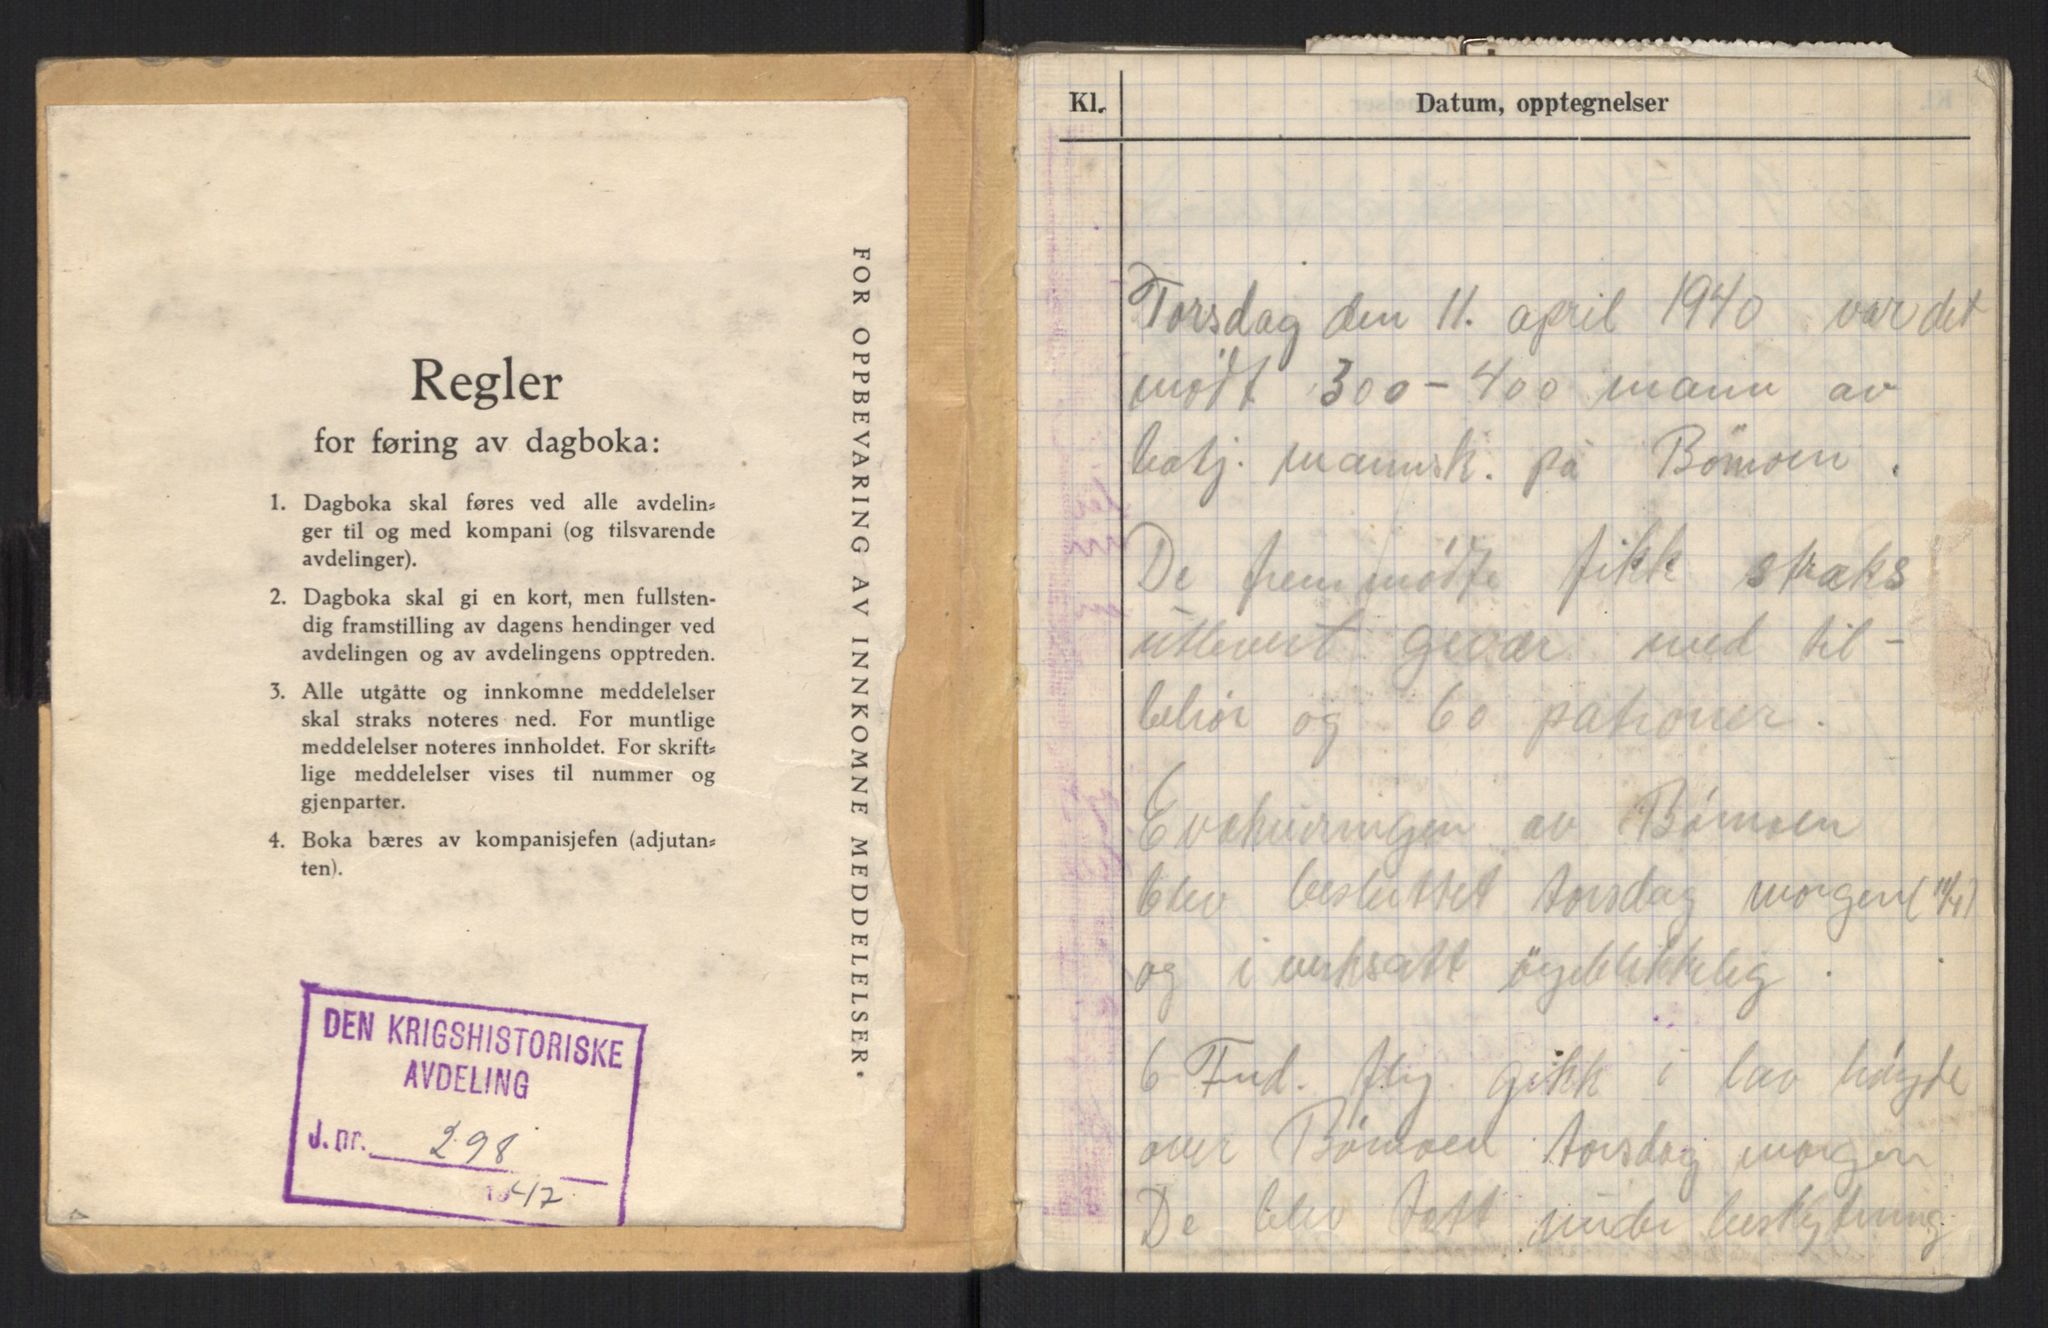 Regler
for føring av dagboka:
1. Dagboka skal føres ved alle avdelin-
ger til og med kompani (og tilsvarende
avdelinger).
2. Dagboka skal gi en kort, men fullsten-
dig framstilling av dagens hendinger ved
avdelingen og av avdelingens opptreden.
3. Alle utgåtte og innkomne meddelelser
skal straks noteres ned. For muntlige
meddelelser noteres innholdet. For skrift-
lige meddelelser vises til nummer og
gjenparter.
4. Boka bæres av kompanisjefen (adjutan-
ten).
FOR OPPBEVARING AV INNKOMNE MEDDELELSER.
DEN KRIGSHISTORISKE
AVDELING
J. nr. 298
1942
Kl. Datum, opptegnelser
Torsdag den 11. april 1940 var det
mödt 300-400 mann av
batj. mannsk. på Bömoen.
De fremmödte fikk straks
utlevert gevær med til-
behör og 60 patroner.
Evakueringen av Bömoen
blev besluttet torsdag morgen (11/4)
og iverksatt öyeblikkelig.
6 Fiendl. fly gikk i lav höyde
over Bömoen torsdag morgen
De blev tatt under beskytning